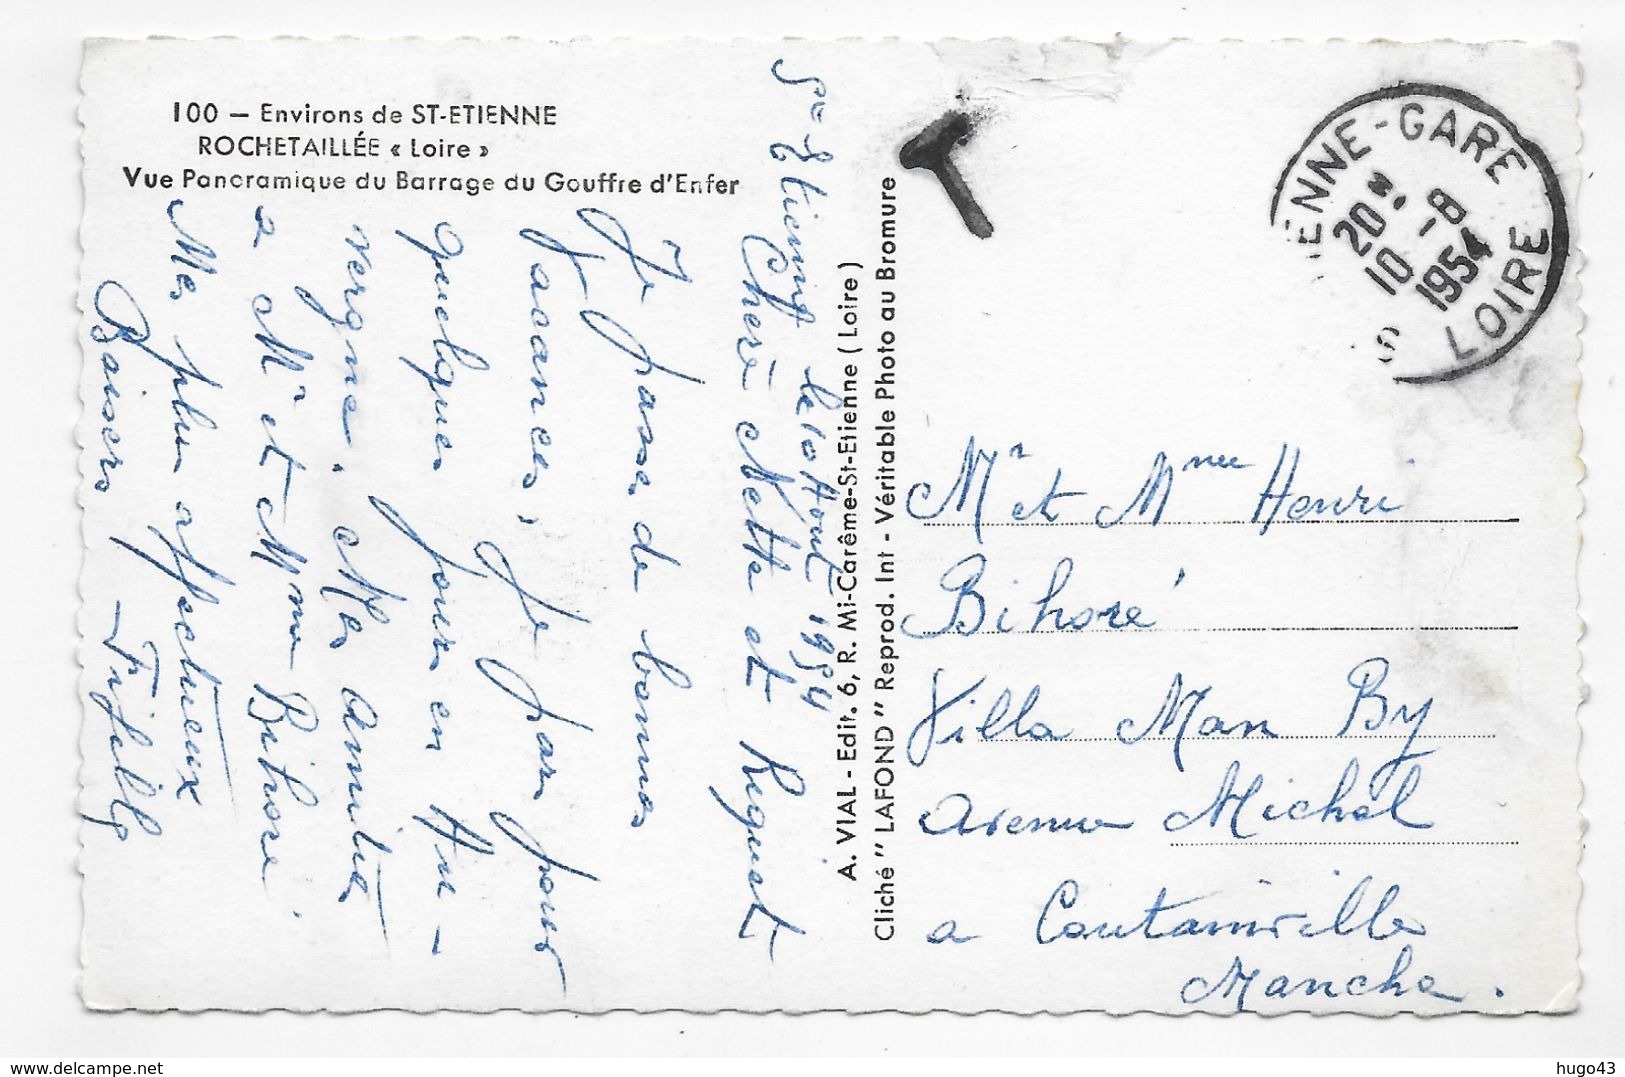 100 — Environs de ST-ETIENNE
ROCHETAILLÉE « Loire »
Vue Panoramique du Barrage du Gouffre d'Enfer
St-Etienne le 10 Aout 1954
Chère Netta et
Je passe de bonnes
vacances, Je pars pour
quelques jours en Au-
vergne. Mes amitiés
a Mr et Mme Bihoré.
Mes plus affectueux
Baisers
A. VIAL - Edit. 6, R. Mi-Carême-St-Etienne ( Loire )
Cliché " LAFOND " Reprod. Int - Véritable Photo au Bromure
T
ENNE-GARE
20H
10 -8
1954
LOIRE
Mr et Mme Henri
Bihoré
Villa Man By
avenue Michel
a Coutainville
Manche.
hugo43